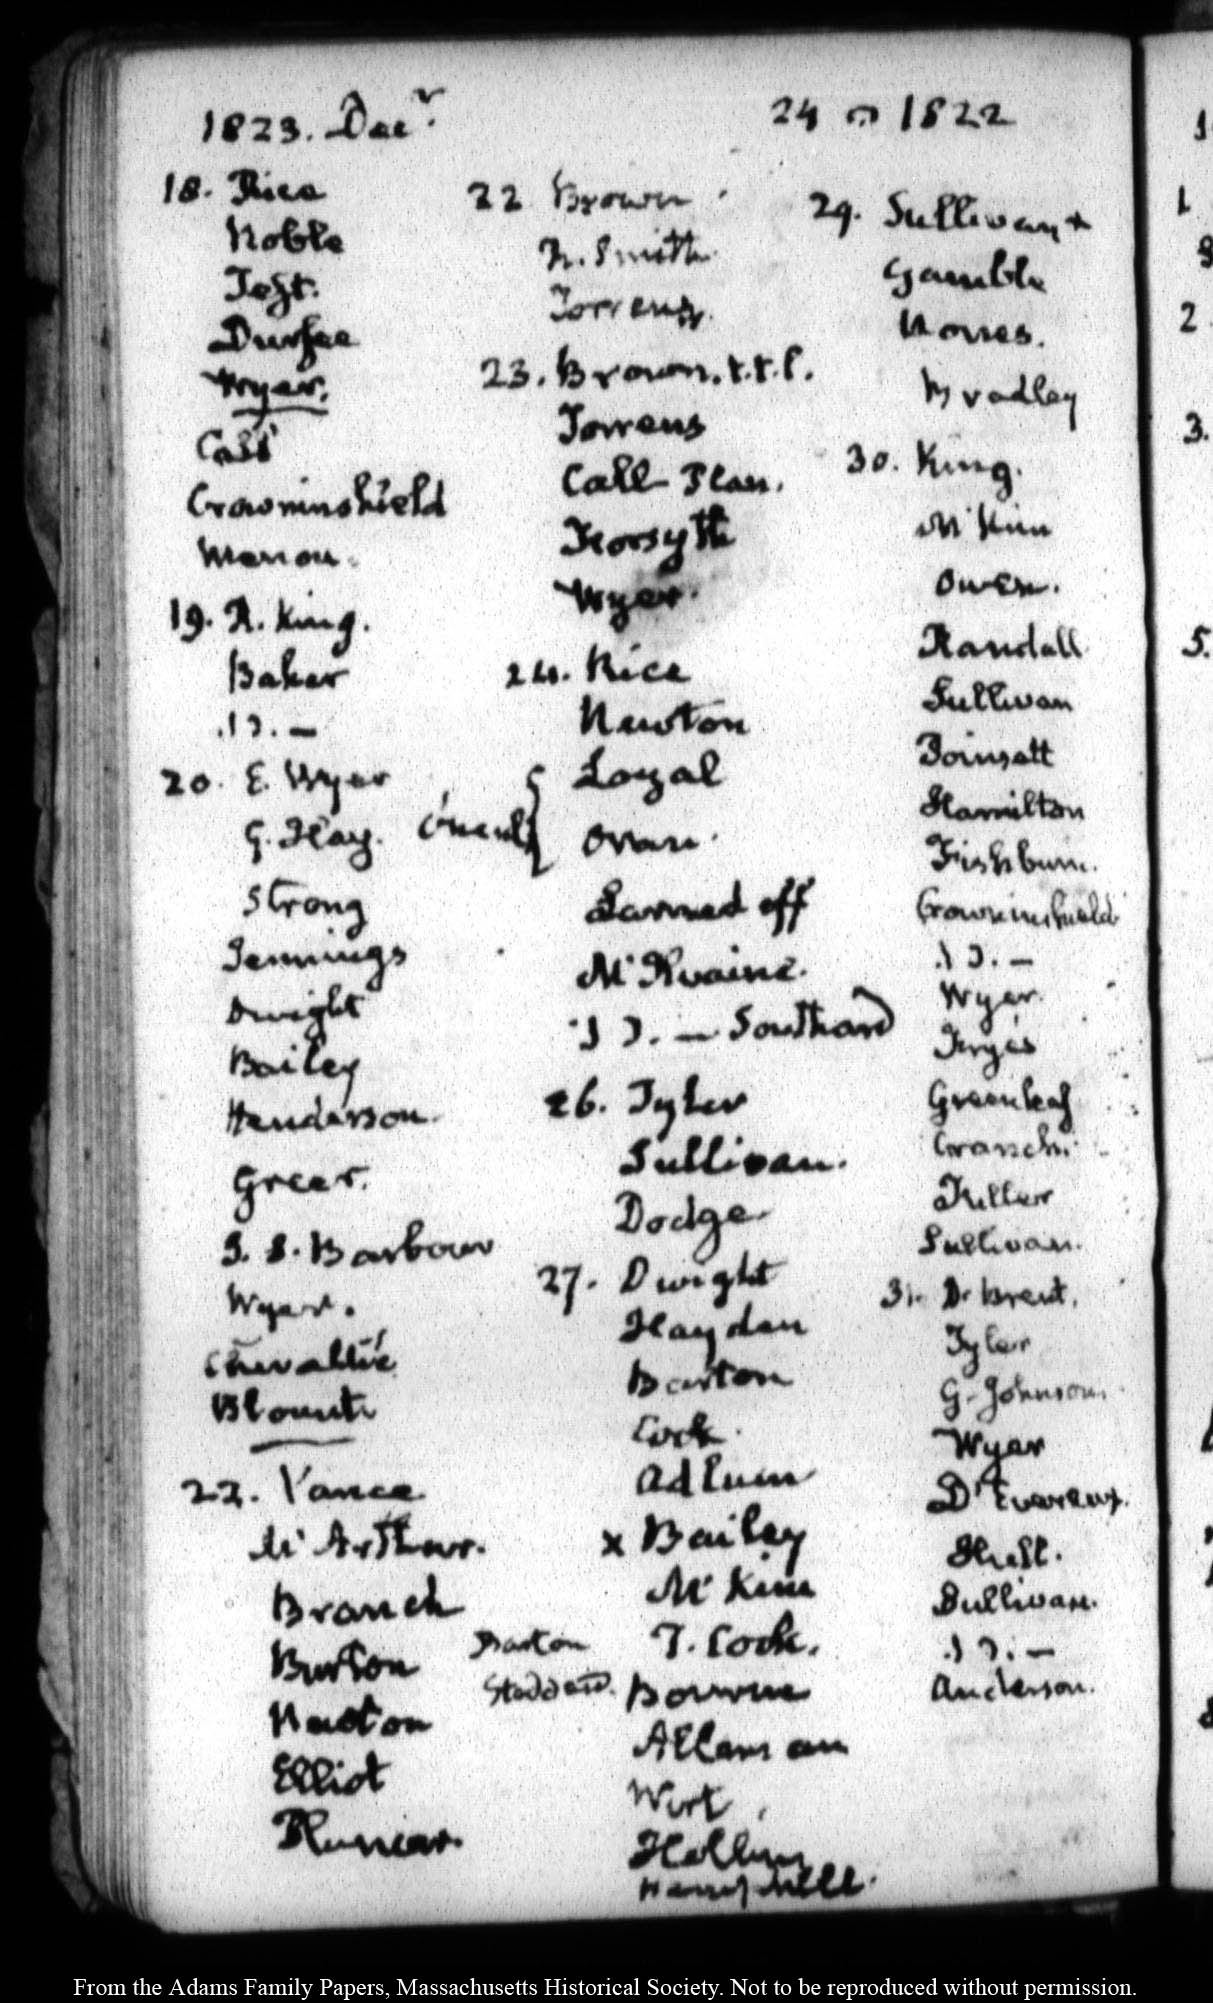 1823. Decr.
24 1822
18. Rice
Noble
Taft.
Durfee
Wyer.
Call
Crowninshield
Marron.
19. R. King.
Baker
.1 ). —
20. E. Wyer
G. Hay.
Strong
Jennings
Dwight
Bailey
Henderson.
Greer.
J. S. Barbour
Wyer.
Chevallié
Blount
22. Vance
McArthur.
Branch
Burton
Newton
Elliot
Plumer.
22 Brown
R. Smith
Torrens.
23. Brown. t.t.l.
Torrens
Call
Forsyth
Wyer.
24. Rice
Newton
Loyal
Oran.
Larned off
McIlvaine.
.1 ). — Southard
26. Tyler
Sullivan.
Dodge
27. Dwight
Hayden
Barton
Cock.
Adlum
x Bailey
McKim
Barton
T. Cock.
Stoddard.
Bowne
Allans an
Wirt
Hemphill.
29. Sullivan x
Gamble
Bradley
30. King.
McKim
Owen.
Randall
Sullivan
Poinsett
Hamilton
Fishburn.
Crowninshield
.1 ). —
Wyer.
Frye's
Greenleaf
Cranch.
Fuller
Sullivan.
31. Dr. Brent.
Tyler
G. Johnson.
Wyer
D'Evereux.
Hull.
Sullivan.
.1 ). —
Anderson.
1
2
3.
5.
From the Adams Family Papers, Massachusetts Historical Society. Not to be reproduced without permission.